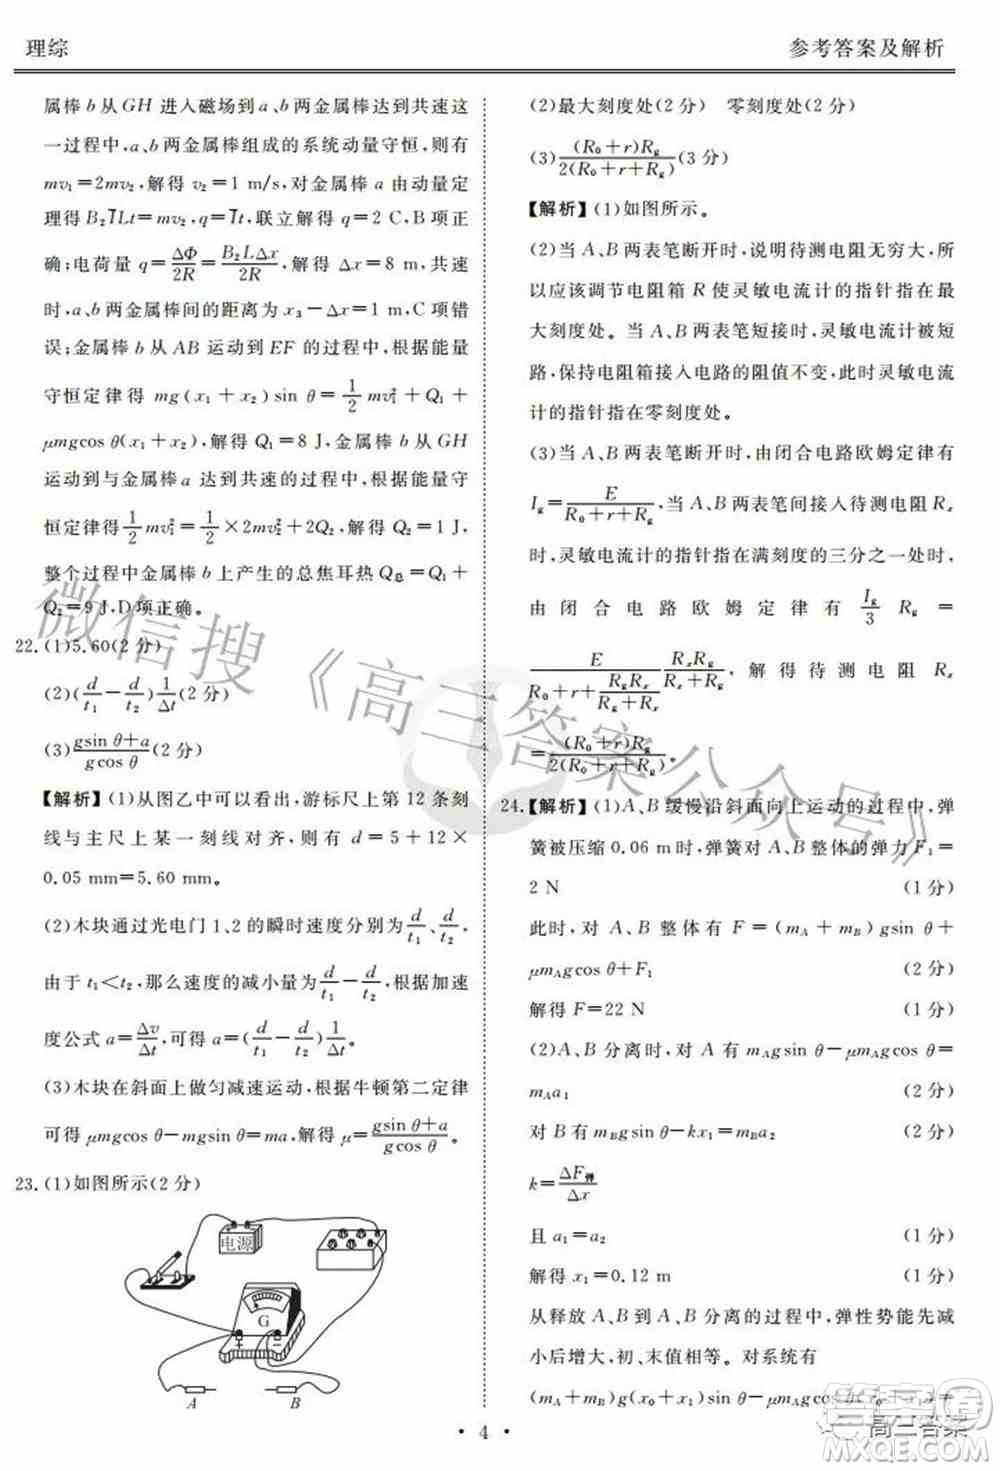 理综
参考答案及解析
属棒 b 从 GH 进入磁场到 a、b 两金属棒达到共速这
一过程中,a、b 两金属棒组成的系统动量守恒,则有
mv₁=2mv₂,解得 v₂=1 m/s,对金属棒 a 由动量定
理得 B₂I̅Lt=mv₂,q=I̅t,联立解得 q=2 C,B 项正
确;电荷量 q=ΔΦ/2R=B₂LΔx/2R,解得 Δx=8 m,共速
时,a、b 两金属棒间的距离为 x₃-Δx=2 m,C 项错
误;金属棒 b 从 AB 运动到 EF 的过程中,根据能量
守恒定律得 mg(x₁+x₂)sin θ=1/2 mv₁²+Q₁+
μmgcos θ(x₁+x₂),解得 Q₁=8 J,金属棒 b 从 GH
运动到与金属棒 a 达到共速的过程中,根据能量守
恒定律得 1/2 mv₁²=1/2×2mv₂²+2Q₂,解得 Q₂=1 J,
整个过程中金属棒 b 上产生的总焦耳热 Q总=Q₁+
Q₂=9 J,D 项正确。
22.(1)5.60(2 分)
(2)(d/t₁-d/t₂)1/Δt(2 分)
(3)gsin θ+a/gcos θ(2 分)
【解析】(1)从图乙中可以看出,游标尺上第 12 条刻
线与主尺上某一刻线对齐,则有 d=5+12×
0.05 mm=5.60 mm。
(2)木块通过光电门 1、2 的瞬时速度分别为 d/t₁、d/t₂,
由于 t₁<t₂,那么速度的减小量为 d/t₁-d/t₂,根据加速
度公式 a=Δv/Δt,可得 a=(d/t₁-d/t₂)1/Δt。
(3)木块在斜面上做匀减速运动,根据牛顿第二定律
可得 μmgcos θ-mgsin θ=ma,解得 μ=gsin θ+a/gcos θ。
23.(1)如图所示(2 分)
电源
G
A
B
(2)最大刻度处(2 分) 零刻度处(2 分)
(3)(R₀+r)Rg/2(R₀+r+Rg)(3 分)
【解析】(1)如图所示。
(2)当 A、B 两表笔断开时,说明待测电阻无穷大,所
以应该调节电阻箱 R 使灵敏电流计的指针指在最
大刻度处。当 A、B 两表笔短接时,灵敏电流计被短
路,保持电阻箱接入电路的阻值不变,此时灵敏电流
计的指针指在零刻度处。
(3)当 A、B 两表笔断开时,由闭合电路欧姆定律有
Ig=E/R₀+r+Rg,当 A、B 两表笔间接入待测电阻 Rx
时,灵敏电流计的指针指在满刻度的三分之一处,
由闭合电路欧姆定律有 Ig/3 Rg=
E/(R₀+r+RgRx/Rg+Rx) RxRg/Rx+Rg,解得待测电阻 Rx
=(R₀+r)Rg/2(R₀+r+Rg)。
24.【解析】(1)A、B 缓慢沿斜面向上运动的过程中,弹
簧被压缩 0.06 m 时,弹簧对 A、B 整体的弹力 F₁=
2 N (1 分)
此时,对 A、B 整体有 F=(mA+mB)gsin θ+
μmAgcos θ+F₁ (2 分)
解得 F=22 N (1 分)
(2)A、B 分离时,对 A 有 mAgsin θ-μmAgcos θ=
mAa₁ (2 分)
对 B 有 mBgsin θ-kx₁=mBa₂ (2 分)
k=ΔF弹/Δx
且 a₁=a₂ (1 分)
解得 x₁=0.12 m (1 分)
从释放 A、B 到 A、B 分离的过程中,弹性势能先减
小后增大,初、末值相等。对系统有
(mA+mB)g(x₀+x₁)sin θ-
• 4 •
微信搜《高三答案公众号》
高三答案
答案圈
MXQE.COM